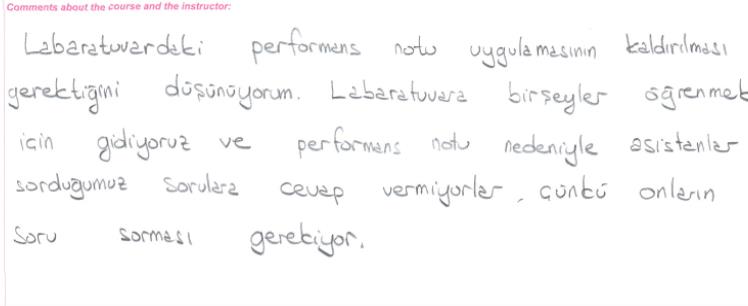 Comments about the course and the instructor:
Labaratuvardaki performans notu uygulamasının kaldırılması
gerektiğini düşünüyorum. Labaratuvara birşeyler öğrenmek
için gidiyoruz ve performans notu nedeniyle asistanlar
sorduğumuz sorulara cevap vermiyorlar, çünkü onların
soru sorması gerekiyor.